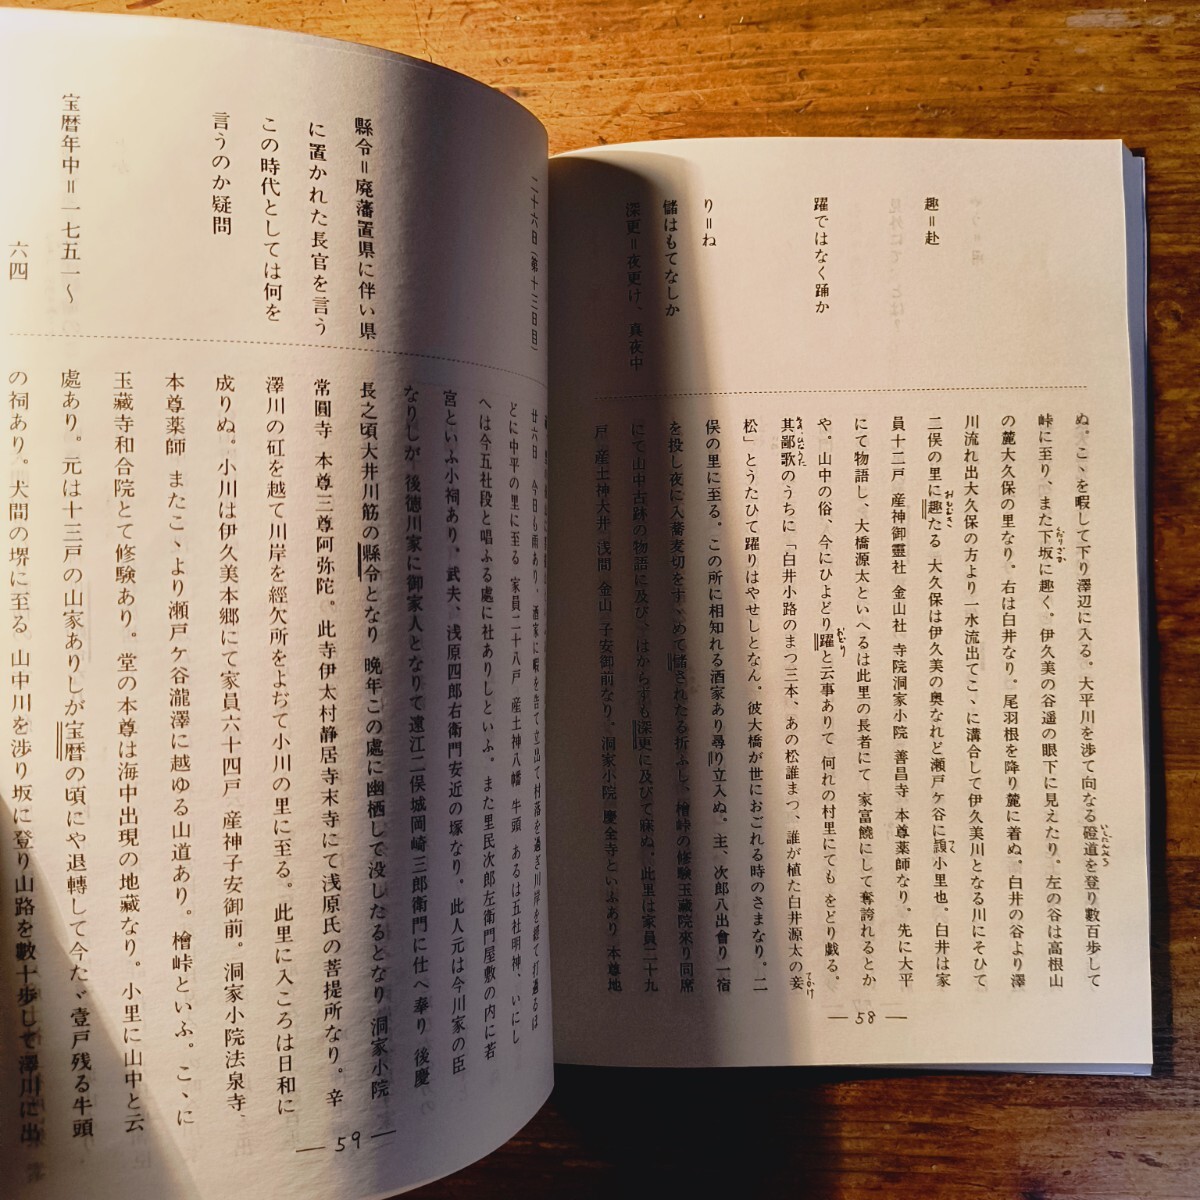 趣＝赴
躍ではなく踊か
り＝ね
儲はもてなしか
深更＝夜更け、真夜中
ぬ。こゝを暇して下り澤辺に入る。大平川を渉て向なる磴道を登り數百歩して
峠に至り、また下坂に趣く。伊久美の谷遥の眼下に見えたり。左の谷は高根山
の麓大久保の里なり。右は白井なり。尾羽根を降り麓に着ぬ。白井の谷より澤
川流れ出大久保の方より一水流出てこゝに溝合して伊久美川となる川にそひて
二俣の里に趣たる 大久保は伊久美の奥なれど瀬戸ケ谷に謨小里也。白井は家
員十二戸 産神御靈社 金山社 寺院洞家小院 善昌寺 本尊薬師なり、先に大平
にて物語し、大橋源太といへるは此里の長者にて 家富饒にして奪誇れるとか
や。山中の俗、今にひよどり躍と云事ありて 何れの村里にても をどり戯る。
其鄙歌のうちに「白井小路のまつ三本、あの松誰まつ、誰が植た白井源太の妾
松」とうたひて躍りはやせしとなん。彼大橋が世におごれる時のさまなり。二
俣の里に至る。この所に相知れる酒家あり尋り立入ぬ。主、次郎八出會り一宿
を投し夜に入蕎麦切をすゝめて儲されたる折ふし、檜峠の修験玉藏院來り同席
にて山中古跡の物語に及び、はからずも深更に及びて寐ぬ。此里は家員二十九
戸 産土神大井 浅間 金山 子安御前なり、洞家小院 慶全寺といふあり 本尊地
—58—
二十六日（第十三日目）
縣令＝廃藩置県に伴い県
に置かれた長官を言う
この時代としては何を
言うのか疑問
宝暦年中＝一七五一〜
六四
廿六日 今日も雨あり、酒家に暇を告て立出て村落を過ぎ川岸を經て打過るほ
どに中平の里に至る 家員二十八戸 産土神八幡 牛頭 あるは五社明神、いにし
へは今五社段と唱ふる處に社ありしといふ。また里民次郎左衛門屋敷の内に若
宮といふ小祠あり、武夫、浅原四郎右衛門安近の塚なり。此人元は今川家の臣
なりしが 後徳川家に御家人となりて遠江二俣城岡崎三郎衛門に仕へ奉り 後慶
長之頃大井川筋の縣令となり 晩年この處に幽栖して没したるとなり 洞家小院
常圓寺 本尊三尊阿弥陀。此寺伊太村静居寺末寺にて浅原氏の菩提所なり。辛
澤川の矼を越て川岸を經欠所をよぢて小川の里に至る。此里に入ころは日和に
成りぬ。小川は伊久美本郷にて家員六十四戸 産神子安御前。洞家小院法泉寺、
本尊薬師 またこゝより瀬戸ケ谷瀧澤に越ゆる山道あり。檜峠といふ。こゝに
玉藏寺和合院とて修験あり。堂の本尊は海中出現の地藏なり。小里に山中と云
處あり。元は十三戸の山家ありしが宝暦の頃にや退轉して今たゞ壹戸残る牛頭
の祠あり。犬間の堺に至る 山中川を渉り坂に登り山路を數十歩して澤川に出
—59—